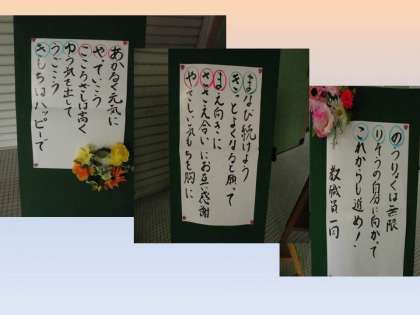 あかるく元気に
やっていこう
こころざしは高く
ゆう気を出して
うごこう
きもちはハッピーで
まなび続けよう
きっとよくなると願って
まえ向きに
ささえ合いにお互い感謝
やさしい気もちを胸に
のうりょくは無限
りそうの自分に向かって
これからも進め!
教職員一同